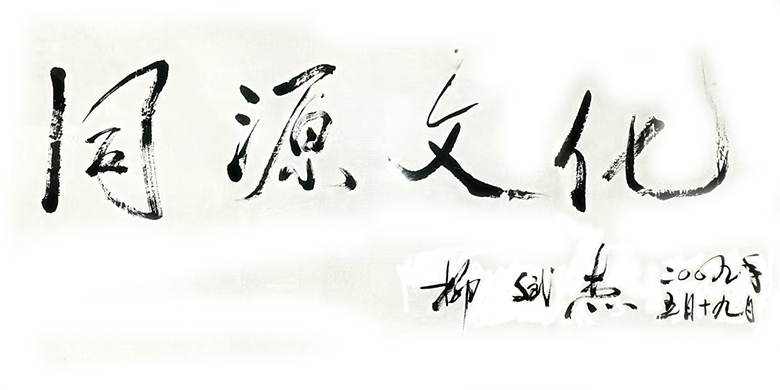 同源文化
柳斌杰
二〇〇九年
五月十九日